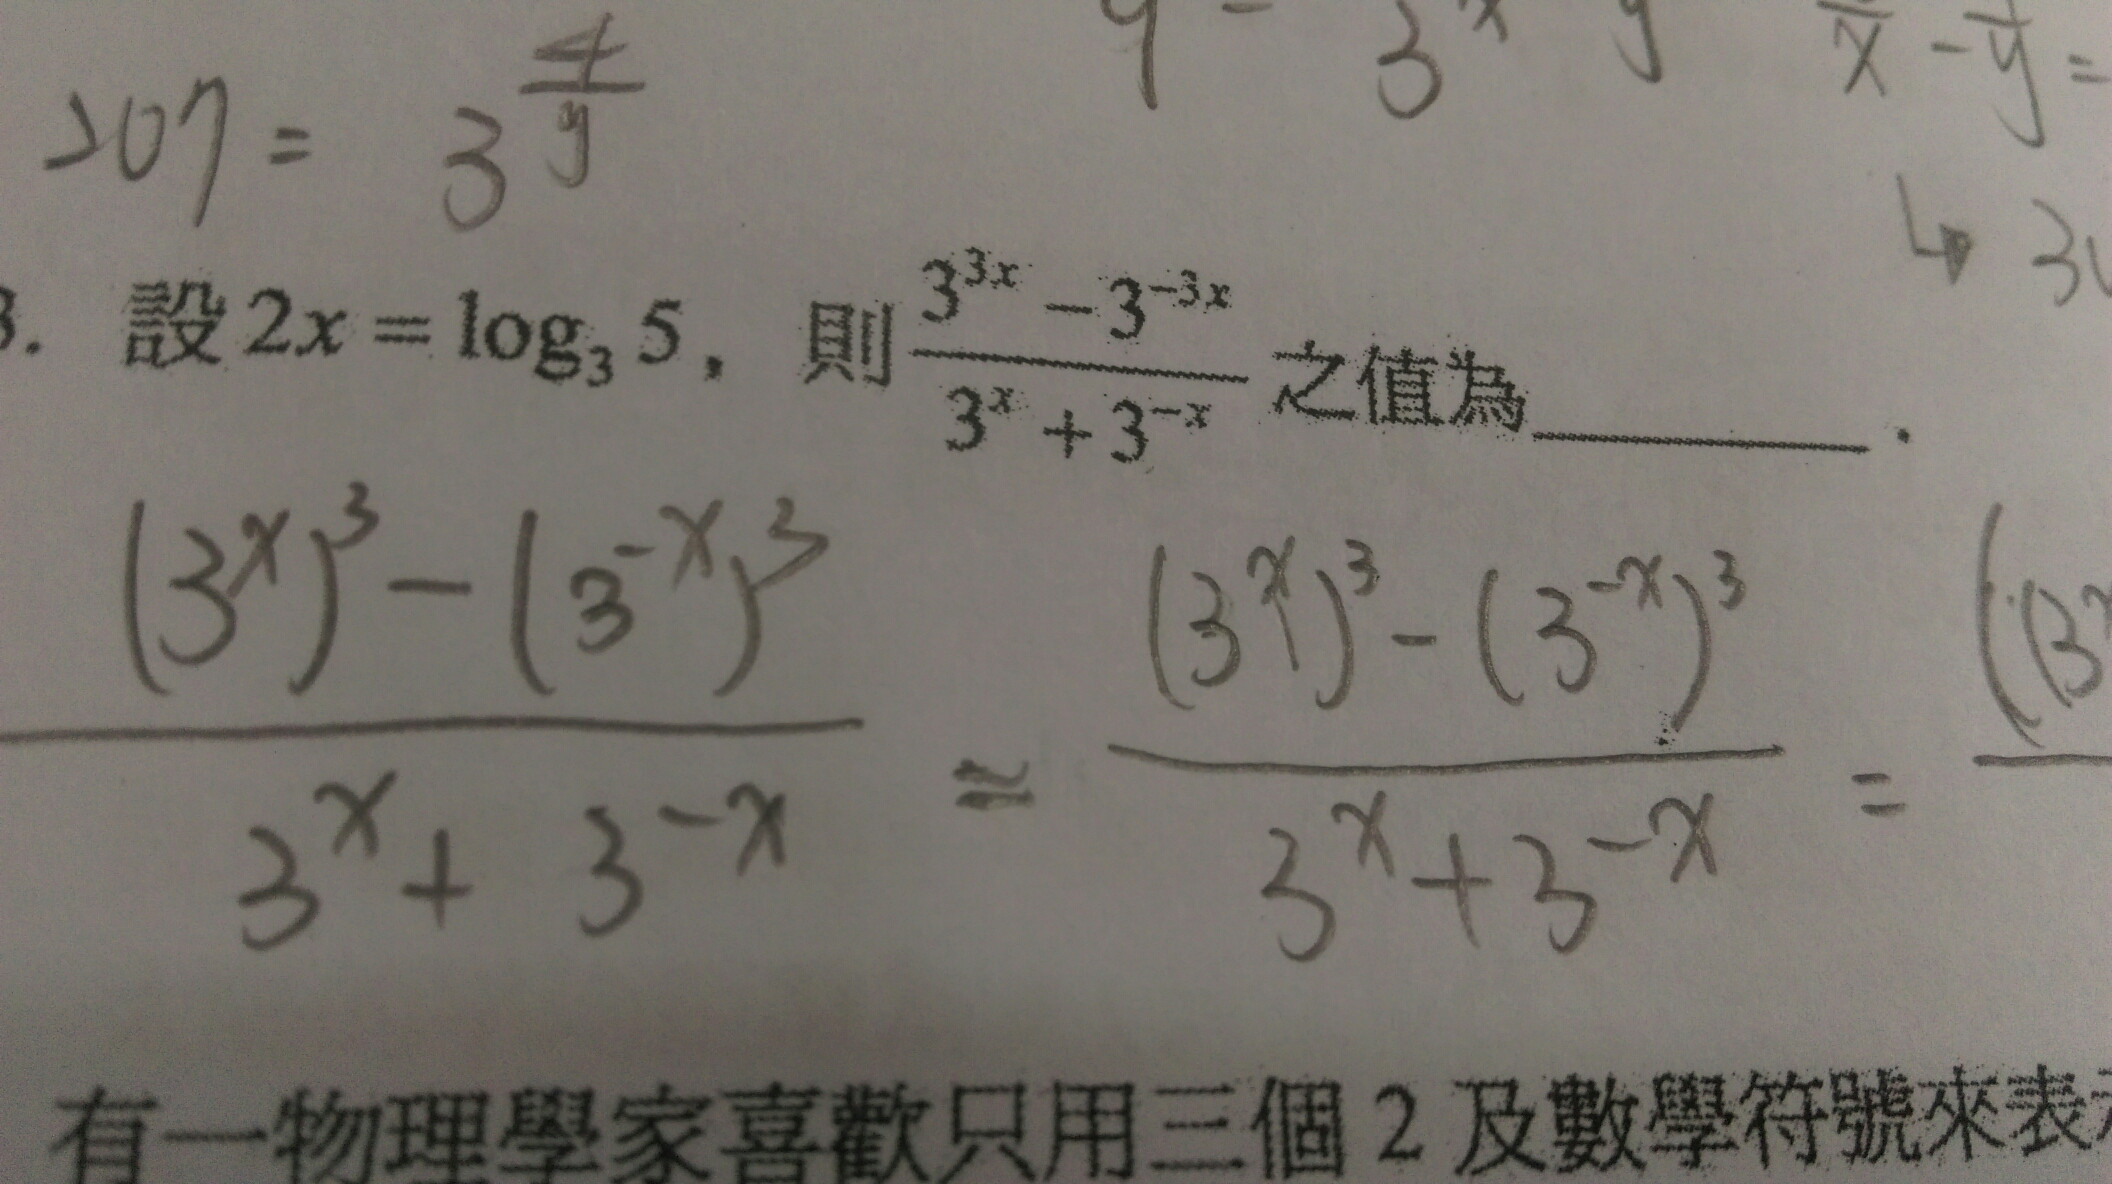 207 = 3^(4/y)
3. 設 2x = log₃ 5，則 (3^(3x) − 3^(−3x))/(3^x + 3^(−x)) 之值為________.
((3^x)^3 − (3^(−x))^3)/(3^x + 3^(−x)) = ((3^x)^3 − (3^(−x))^3)/(3^x + 3^(−x)) =
有一物理學家喜歡只用三個 2 及數學符號來表